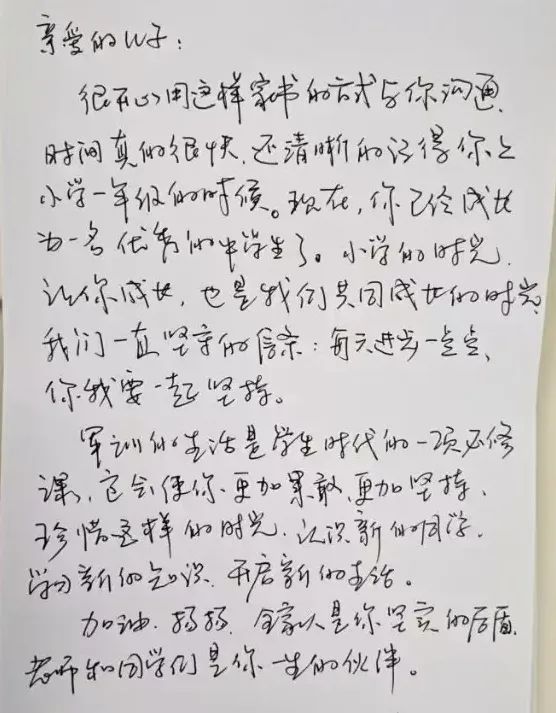 亲爱的儿子：
很开心用这样家书的方式与你沟通，
时间真的很快，还清晰的记得你上
小学一年级的时候。现在，你已经成长
为一名优秀的中学生了。小学的时光，
让你成长，也是我们共同成长的时光，
我们一直坚守的信条：每天进步一点点，
你我要一起坚持。
军训的生活是学生时代的一项必修
课，它会使你更加果敢、更加坚持，
珍惜这样的时光，认识新的同学，
学习新的知识，开启新的生活。
加油，扬扬，全家人是你坚实的后盾，
老师和同学们是你一生的伙伴。